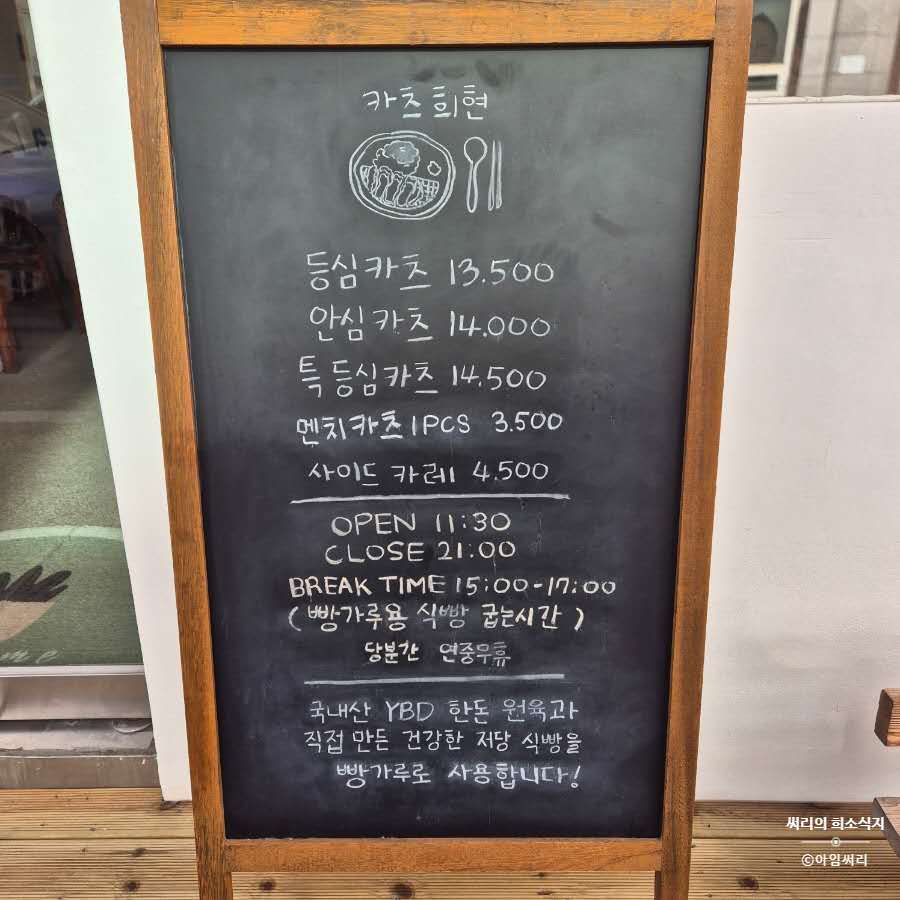 카츠 희현
등심카츠 13.500
안심카츠 14.000
특 등심카츠 14.500
멘치카츠 1PCS 3.500
사이드 카레 4.500
OPEN 11:30
CLOSE 21:00
BREAK TIME 15:00-17:00
(빵가루용 식빵 굽는시간)
당분간 연중무휴
국내산 YBD 한돈 원육과
직접 만든 건강한 저당 식빵을
빵가루로 사용합니다!
써리의 희소식지
©아임써리